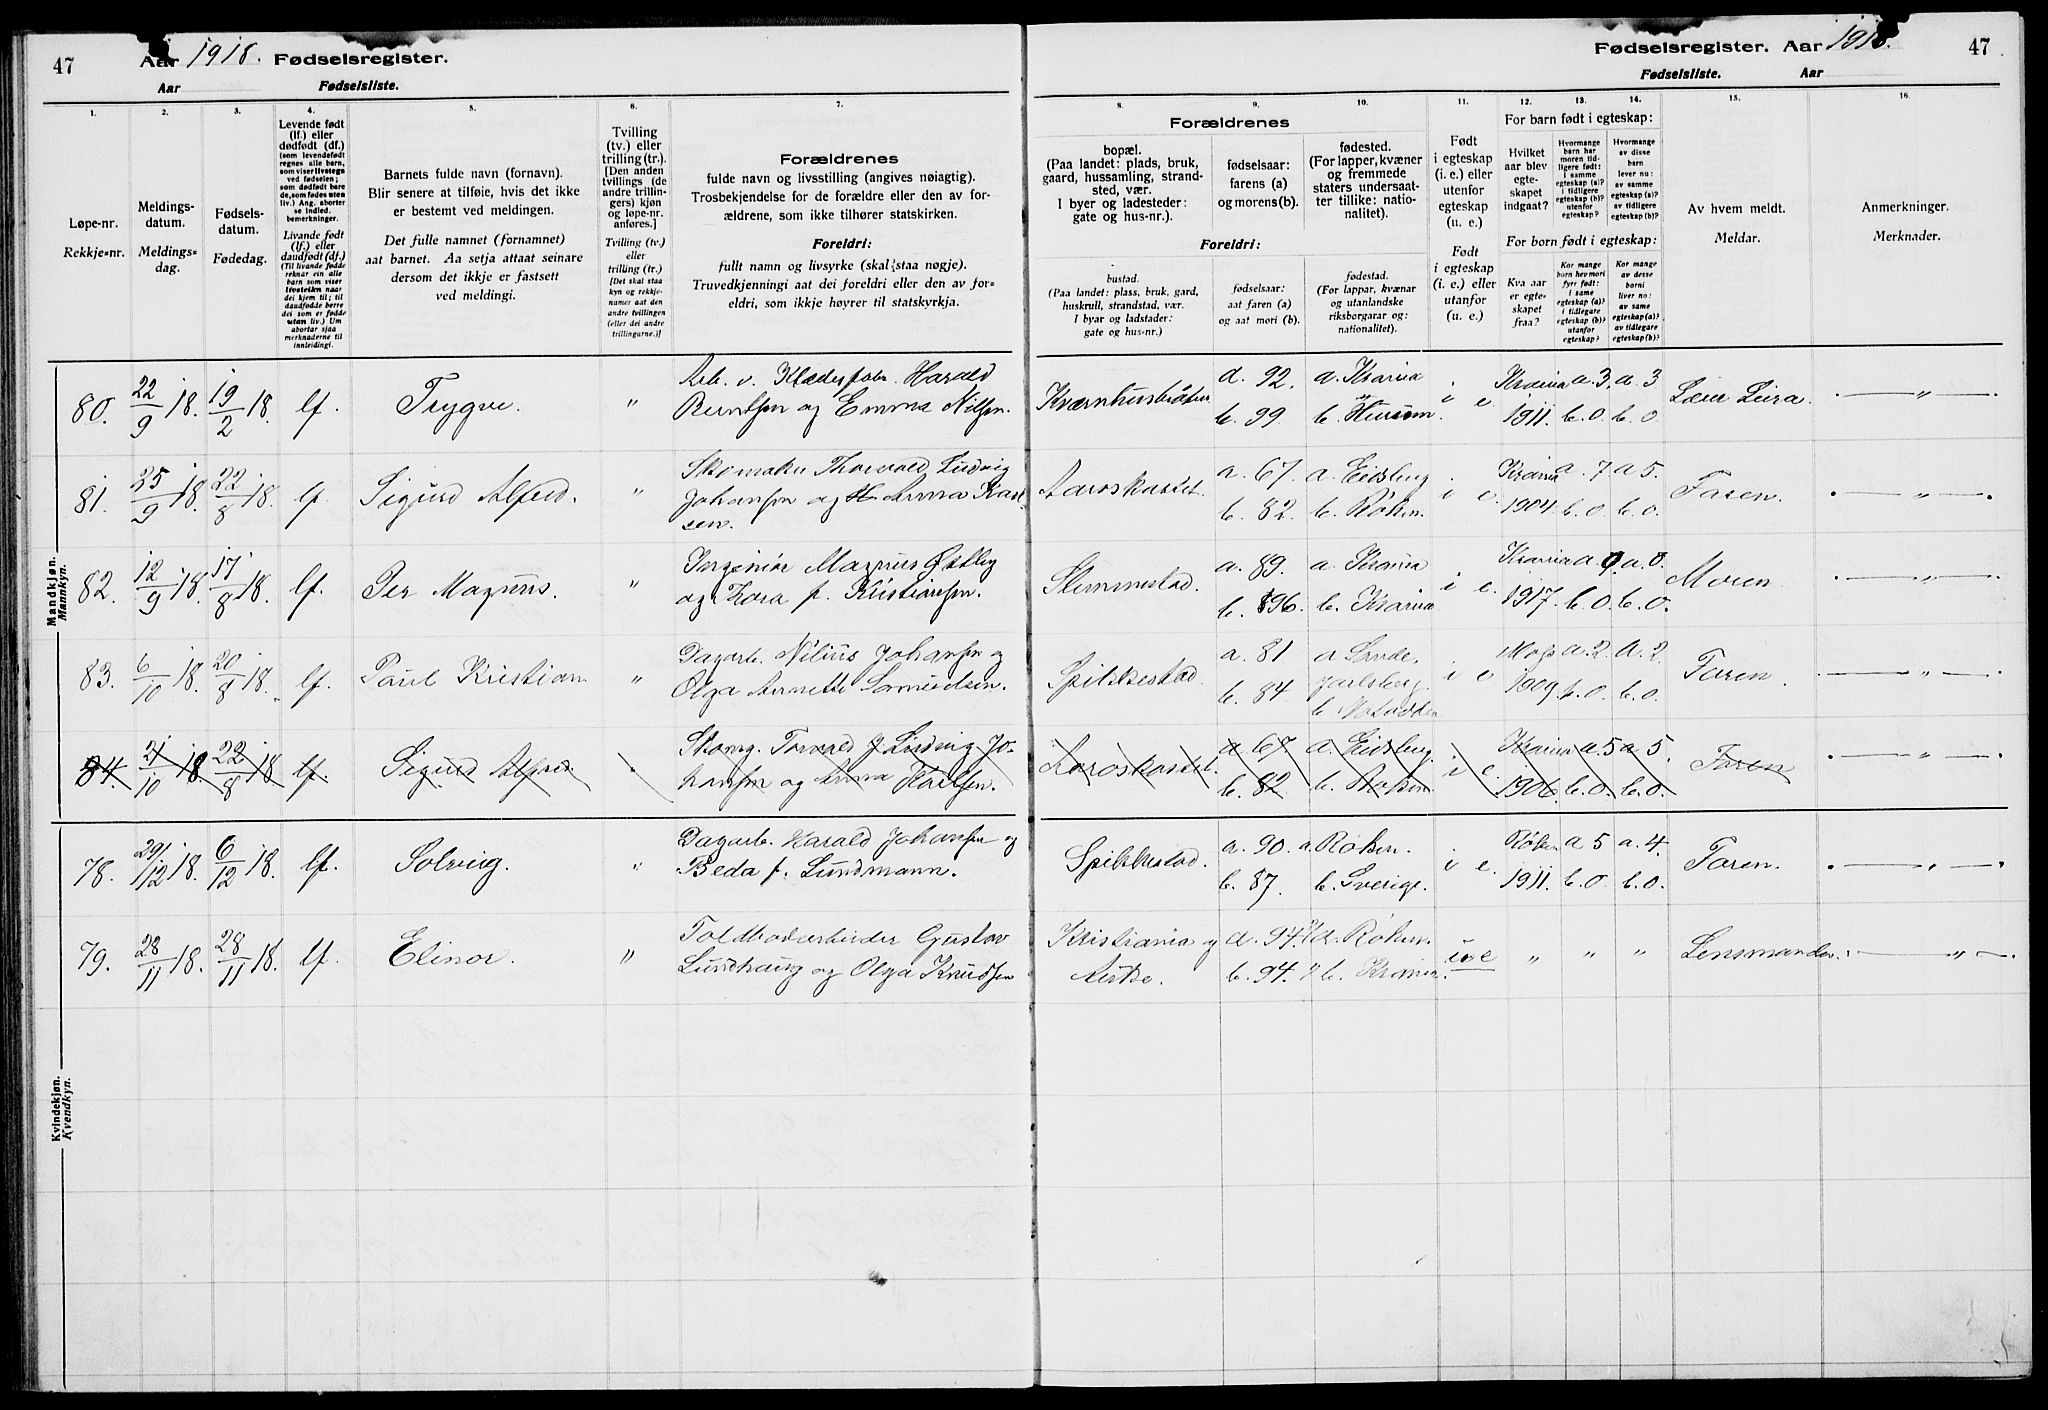 47
Aar 1918. Fødselsregister.
Aar Fødselsliste.
Fødselsregister. Aar 1918.
Fødselsliste. Aar
47
1.
Løpe-nr.
Rekkje-nr.
2.
Meldings-
datum.
Meldings-
dag.
3.
Fødsels-
datum.
Fødedag.
4.
Levende født
(lf.) eller
dødfødt (df.)
(som levendefødt
regnes alle barn,
som viser livstegn
ved fødselen;
som dødfødt bare
de, som fødes uten
liv.) Ang. aborter
se indled.
bemerkninger.
Livande født
(lf.) eller
daudfødt (df.)
(Til livande fødde
reknar ein alle
barn som viser
livsteikn naar
dei kjem til; til
daudfødde berre
dei som er fødde
utan liv.) Um
abortar sjaa
merknaderne til
innleidingi.
5.
Barnets fulde navn (fornavn).
Blir senere at tilføie, hvis det ikke
er bestemt ved meldingen.
Det fulle namnet (fornamnet)
aat barnet. Aa setja attaat seinare
dersom det ikkje er fastsett
ved meldingi.
6.
Tvilling
(tv.) eller
trilling (tr.).
[Den anden
tvillings (de
andre trillin-
gers) kjøn
og løpe-nr.
anføres.]
Tvilling (tv.)
eller
trilling (tr.)
[Det skal staa
kyn og rekkje-
numer aat den
andre tvillingen
(eller dei andre
trillingarne.)]
7.
Forældrenes
fulde navn og livsstilling (angives nøiagtig).
Trosbekjendelse for de forældre eller den av for-
ældrene, som ikke tilhører statskirken.
Foreldri:
fullt namn og livsyrke (skal staa nøgje).
Truvedkjenningi aat dei foreldri eller den av for-
eldri, som ikkje høyrer til statskyrkja.
Forældrenes
8.
bopæl.
(Paa landet: plads, bruk,
gaard, hussamling, strand-
sted, vær.
I byer og ladesteder:
gate og hus-nr.).
9.
fødselsaar:
farens (a)
og morens (b).
10.
fødested.
(For lapper, kvæner
og fremmede
staters undersaat-
ter tillike: natio-
nalitet).
Foreldri:
bustad.
(Paa landet: plass, bruk, gard,
huskrull, strandstad, vær.
I byar og ladstader:
gate og hus-nr.)
fødselsaar:
aat faren (a)
og aat mori (b).
fødestad.
(For lappar, kvænar
og utanlandske
riksborgarar og:
nationalitet).
11.
Født
i egteskap
(i. e.) eller
utenfor
egteskap
(u. e.)
Født
i egteskap
(i. e.) eller
utanfor
(u. e.)
For barn født i egteskap:
12.
Hvilket
aar blev
egte-
skapet
indgaat?
13.
Hvormange
barn har
moren tid-
ligere født:
i samme
egteskap (a)?
i tidligere
egteskap (b)?
utenfor
egteskap?
14.
Hvormange
av disse
barn
lever nu:
av samme
egteskap (a)?
av tidligere
egteskap (b)?
For born født i egteskap:
Kva aar
er egte-
skapet
fraa?
Kor mange
born hev mori
fyrr født:
i same
egteskap (a)?
i tidlegare
egteskap (b)?
utanfor
egteskap?
Kor mange
av desse
borni
liver no:
av same
egteskap (a)?
av tidlegare
egteskap (b)?
15.
Av hvem meldt.
Meldar.
16.
Anmerkninger.
Merknader.
Mandkjøn.
Mannkyn.
80. 22/9 18. 19/2 18. lf. Trygve. " Arb. v. Harald
Berntsen og Emma Nilsen. a. 92. a. Krania i e. Krania a. 3. a. 3
b. 99. b. Hurum. 1911. b. 0. b. 0. Leira. "
81. 25/9 18. 22/8 18. lf. Sigurd Alfred. " Skomaker Thorvald Ludvig
Johansen og Anna Karl-
sen. Aaroskastet. a. 67. a. Eidsberg i e. Krania a. 7. a. 5.
b. 82. b. Røken. 1904. b. 0. b. 0. Faren. "
82. 12/9 18. 17/8 18. lf. Per Magnus. " Ingeniør Magnus Østby
og Zara f. Kristiansen. Slemmestad. a. 89. a. Krania i e. Krania a. 0. a. 0.
b. 896. b. Krania 1917. b. 0. b. 0. Moren "
83. 6/10 18. 20/8 18. lf. Paul Kristian " Dagarb. Nilius Johansen og
Olga Annette Samuelsen. Spikkestad. a. 81 a Sande, i e a. 2. a. 2.
Jarlsberg.
b. 84 b. Notodden 1909 b. 0. b. 0. Faren. "
84. 21/10 18. 22/8 18. lf. Sigurd Alfred. " Skomg. Torvald Ludvig Jo-
hansen og Anna Karlsen. Aaroskastet. a. 67 a. Eidsberg. i e. Krania a. 5 a 5.
b. 82 b. Røken. 1906. b. 0. b. 0. Faren "
Kvindekjøn.
Kvendkyn.
78. 29/12 18. 6/12 18. lf. Solveig. " Dagarb. Harald Johansen og
Beda f. Lundmann. Spikkestad. a. 90. a. Røken. i e. Røken a 5 a. 4.
b. 87. b. Sverige. 1911. b. 0. b. 0. Faren. "
79. 28/11 18. 28/11 18. lf. Elinor. " Toldbodarbeider Gustav
Lundhaug og Olga Knudsen Kristiania og a. 94. a. Røken. u e " " " Lensmanden. "
b. 94. b. Krania.